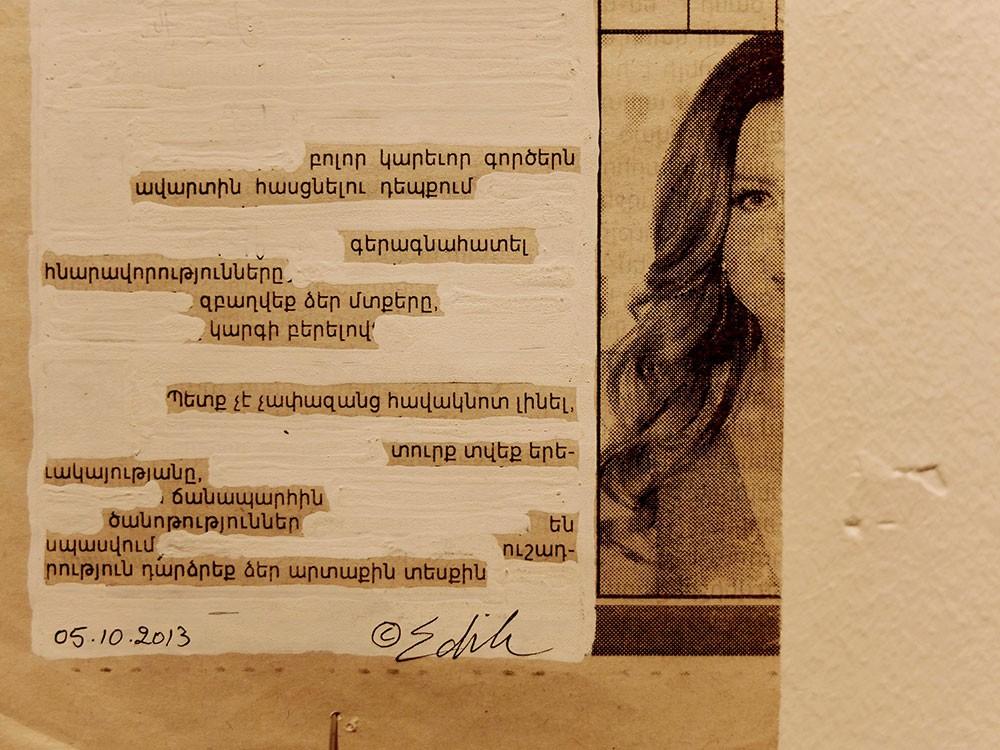 բոլոր կարեւոր գործերն
ավարտին հասցնելու դեպքում
գերագնահատել
հնարավորությունները
զբաղվեք ձեր մտքերը,
կարգի բերելով
Պետք չէ չափազանց հավակնոտ լինել,
տուրք տվեք երե-
ւակայությանը,
ճանապարհին
ծանոթություններ են
սպասվում ուշադ-
րություն դարձրեք ձեր արտաքին տեսքին
05.10.2013 © Edik